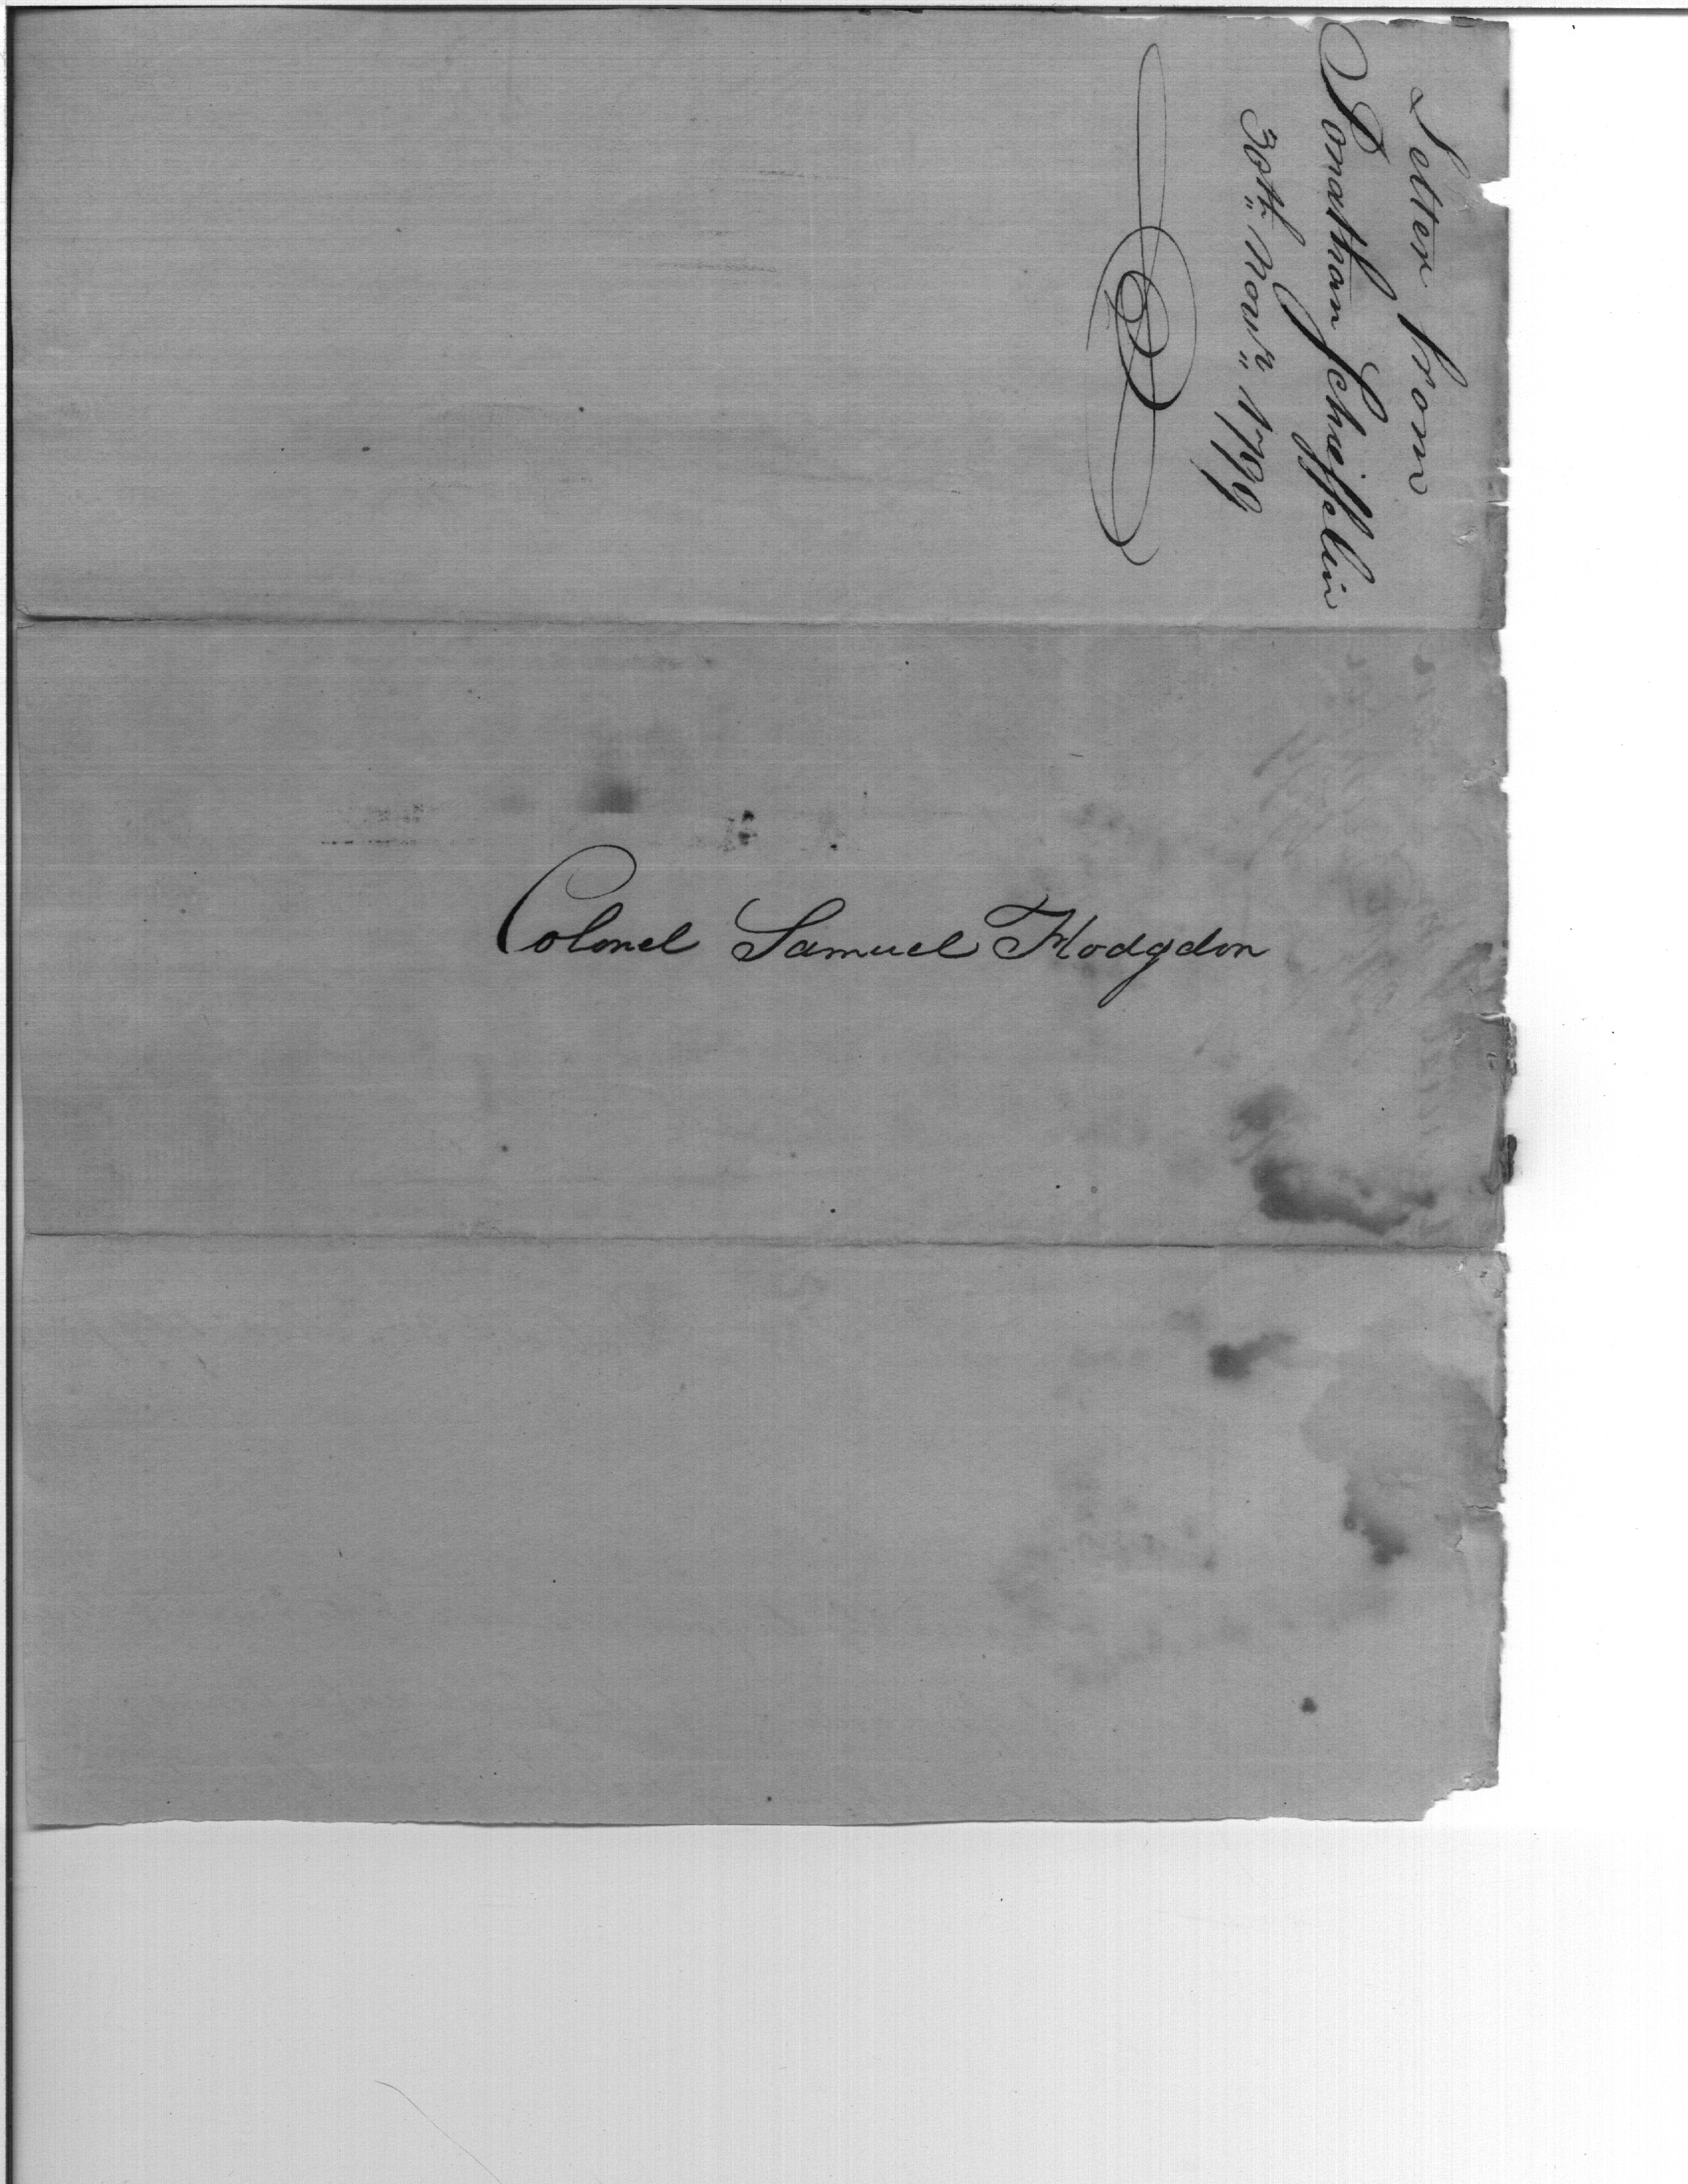 Letter from
Jonathan Schieffelin
30th Novr. 1799
Colonel Samuel Hodgdon